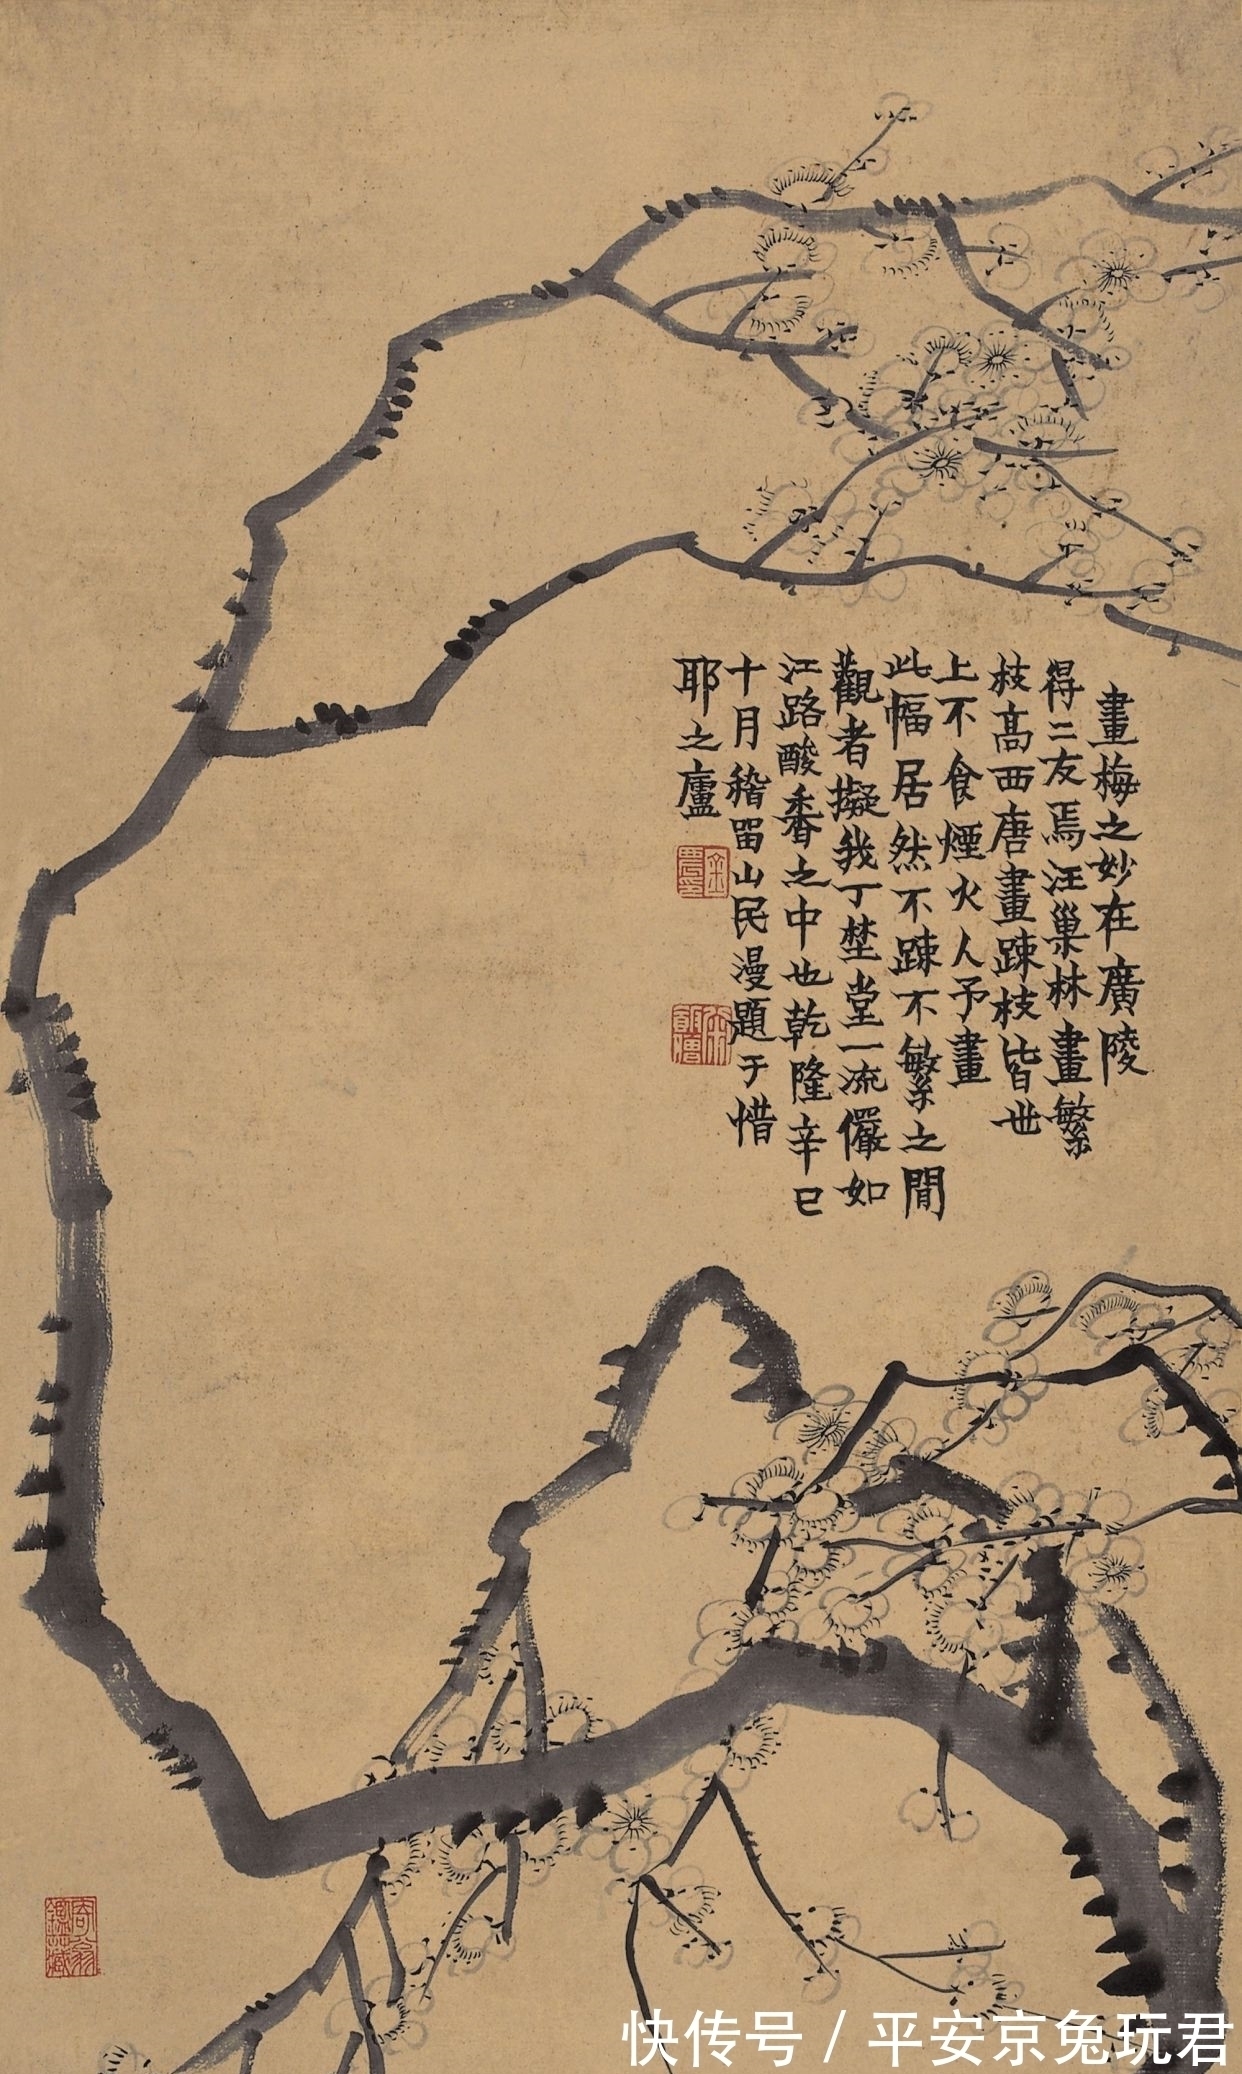 畫梅之妙在廣陵
得二友焉汪巢林畫繁
枝髙西唐畫踈枝皆世
上不食煙火人予畫
此幅居然不踈不繁之間
觀者擬我丁埜堂一流儼如
江路酸香之中也乾隆辛巳
十月稽留山民漫題于惜
耶之廬
快传号 / 平安京兔玩君